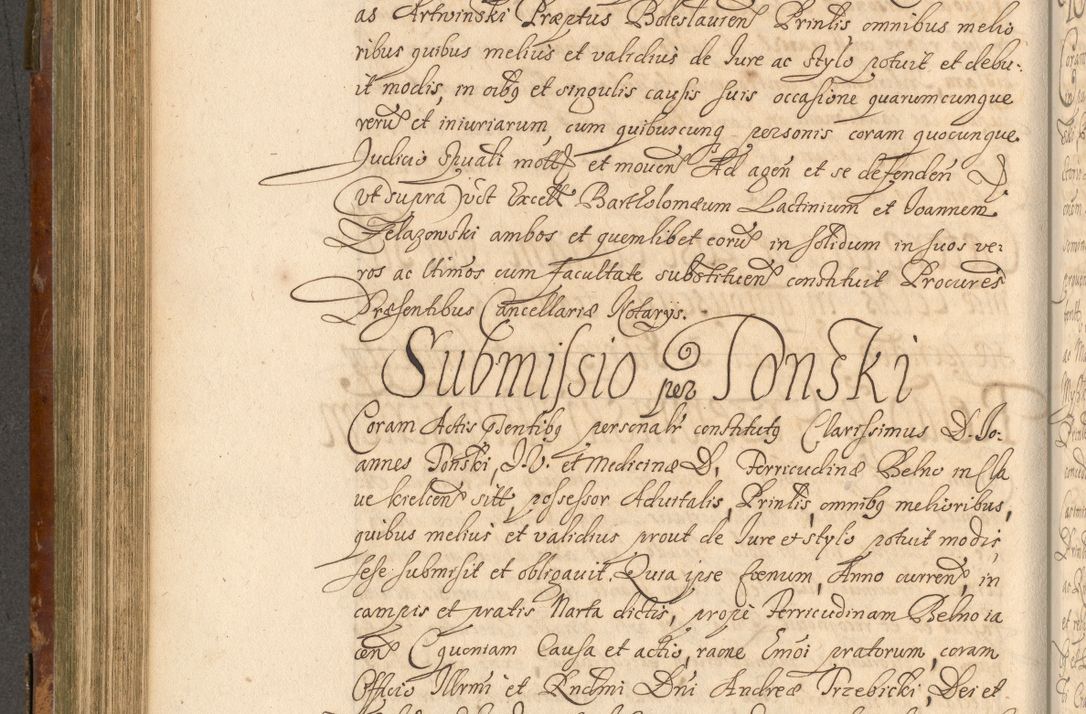 as Artwinski Præptus Boleslauien Prinlis omnibus melio
ribus quibus melius et validius de Iure ac stylo potuit et debu-
it modis, in oibq et singulis causis suis occasione quarumcunque
reru et iniuriarum, cum quibuscunq personis coram quocunque
Iudicio Spuali mott et mouen Ad agen et se defenden D
(ut supra) vst Excell Bartholomæum Lactinium et Ioannem
Zelazowski ambos et quemlibet eoru in solidum in suos ve-
ros ac ltimos cum facultate substituen constituit Procures
Præsentibus Cancellariæ Notarys.
Submissio per Ponski
Coram Actis pntibq personalr constitutq Clarissimus D. Io-
annes Ponski, I. V. et Medicinæ D, Terricudinæ Belno in Cla
ue kielcen sitt, possessor Aduitalis, Prinlis, omnibq melioribus,
quibus melius et validius prout de Iure et stylo potuit modis,
sese submisit et obligauit. Quia ipse fœnum, Anno curren, in
campis et pratis Narta dictis, prope Terricudinam Belno ia
cen C quoniam Causa et actio, raõne Emõi pratorum, coram
Officio Illrmi et Rndmi Dni Andreæ Trzebicki, Dei et